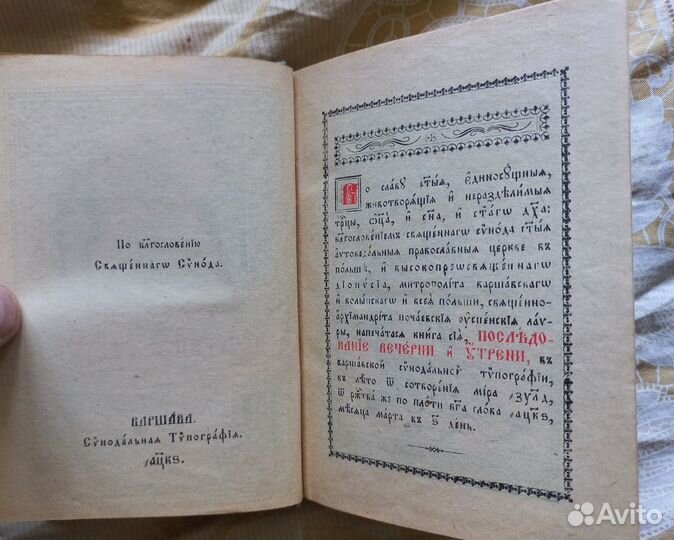 По блгⷭ҇ловенїю
Сващ҃е́ннагѡ Сѷно́да.
ВАРША́ВА.
Сѷнода́льнаѧ Тѷпогра́фїѧ.
҂ац҃кѕ.
Во сла́ву ст҃ы́ѧ, є҆диносꙋ́щныѧ,
животворѧ́щїѧ и҆ нераздѣ́лимыѧ
трⷪ҇цы, ѻ҆ц҃а̀, и҆ сн҃а, и҆ ст҃а́гѡ дх҃а:
благослове́нїемъ свѧще́ннагѡ сѷно́да ст҃ы́ѧ
а҆ѵтокефа́льныѧ правосла́вныѧ це́ркве въ
по́льшѣ, и҆ высокопреѡсвѧще́ннагѡ
дїонѵ́сїѧ, митрополі́та варша́вскагѡ
и҆ волы́нскагѡ и҆ всеѧ̀ по́льши, свѧще́нно-
а҆рхїмандрі́та поча́евскїѧ оу҆спе́нскїѧ ла́ѵ-
ры, напеча́тасѧ кни́га сїѧ̀, ПОСЛѢ́ДО-
ВАНЇЕ ВЕЧЕ́РНИ И҆ ОУ҆́ТРЕНИ, въ
варша́вской сѷнода́льной тѷпогра́фїи,
въ лѣ́то ѿ сотворе́нїѧ мі́ра ҂зулд,
ѿ рж҃тва́ же по пло́ти бг҃а сло́ва ҂ацкѕ,
мѣ́сѧца ма́рта въ є҃ де́нь.
Avito